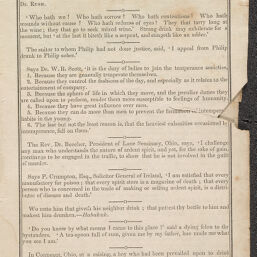 DR. RUSH.
'Who hath wo? Who hath sorrow? Who hath contentions? Who hath
wounds without cause? Who hath redness of eyes? They that tarry long at
the wine; they that go to seek mixed wine. Strong drink may exhilerate for a
moment, but 'at the last it biteth like a serpent, and stingeth like an adder.'
The suitor to whom Philip had not done justice, said, 'I appeal from Philip
drunk to Philip sober.'
Says Dr. W. B. Scott, 'it is the duty of ladies to join the temperance societies,
1. Because they are generally temperate themselves.
2. Because they control the fashions of the day, and especially as it relates to the
entertainment of company.
3. Because the sphere of life in which they move, and the peculiar duties they
are called upon to perform, render them more susceptible to feelings of humanity.
4. Because they have great influence over men.
5. Because they can do more than men to prevent the formation of intemperate
habits in the young.
6. The last but not the least reason is, that the heaviest calamities occasioned by
intemperance, fall on them.'
The Rev. Dr. Beecher, President of Lane Seminary, Ohio, says, 'I challenge
any man who understands the nature of ardent spirit, and yet, for the sake of gain,
continues to be engaged in the traffic, to show that he is not involved in the guilt
of murder.
Says P. Crampton, Esq., Solicitor General of Ireland, 'I am satisfied that every
manufactory for poison; that every spirit store is a magazine of death; that every
person who is concerned in the trade of making or selling ardent spirit, is a distri-
buter of disease and death.'
Wo unto him that giveth his neighbor drink; that puttest thy bottle to him and
makest him drunken.—Habakkuk.
'Do you know by what means I came to this place?' said a dying felon to the
bystanders. 'A tea-spoon full of rum, given me by my father, has made me what
you see I am.'
In Coventry, Ohio, at a raising, a boy who had been prevailed upon to drink